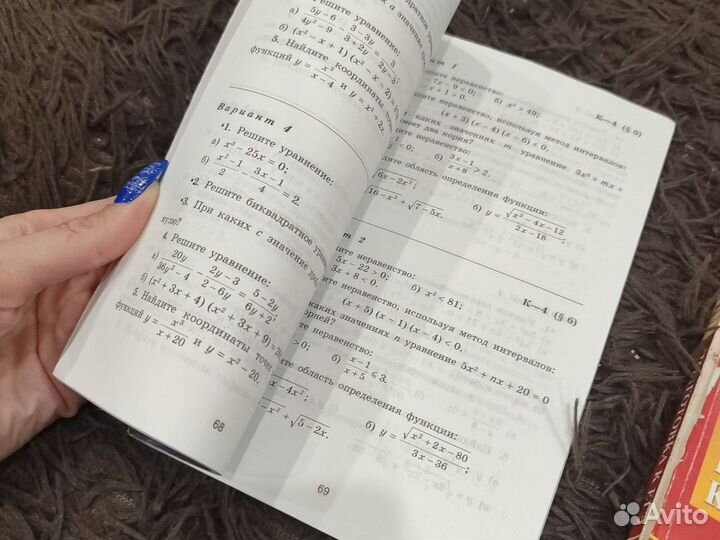 Решите уравнение:
а) (5y – 6)/(4y² – 9) – (3 – 3y)/(3 + 2y) = 3/(2y – 3);
б) (x² – x + 1)(x² – x – 2) =
5. Найдите координаты
функций y = x³/(x – 4) и y = x² + 2x
Вариант 4
•1. Решите уравнение:
а) x³ – 25x = 0;
б) (x² – 1)/2 – (3x – 1)/4 = 2.
•2. Решите биквадратное
•3. При каких с значение
нулю?
4. Решите уравнение:
а) 20y/(36y² – 4) – (2y – 3)/(2 – 6y) = (5 – 2y)/(6y + 2);
б) (x² + 3x + 4)(x² + 3x + 9) =
5. Найдите координаты
функций y = x³/(x + 20) и y = x² – 20.
68
К—4 (§ 6)
неравенство:
– 7x – 9 < 0; б) x² > 49;
– x + 1 > 0.
неравенство, используя метод интервалов:
(x + 3)(x – 4)(x – 6) < 0.
каких значениях m уравнение 3x² + mx +
имеет два корня?
неравенство:
< 0; б) (3x – 1)/(x + 8) > 2.
область определения функции:
6x – 2x²; б) y = √(x² – 4x – 12)/(2x – 18);
16 – x² + √(7 – 5x).
т 2
К—4 (§ 6)
неравенство:
5x – 22 > 0; б) x² < 81;
3x + 8 < 0.
неравенство, используя метод интервалов:
(x + 5)(x – 1)(x – 4) < 0.
каких значениях n уравнение 5x² + nx + 20 = 0
корней?
неравенство:
> 0; б) (x – 1)/(x + 5) ⩽ 3.
область определения функции:
x – 4x²; б) y = √(x² + 2x – 80)/(3x – 36);
– x² + √(5 – 2x).
69
Avito